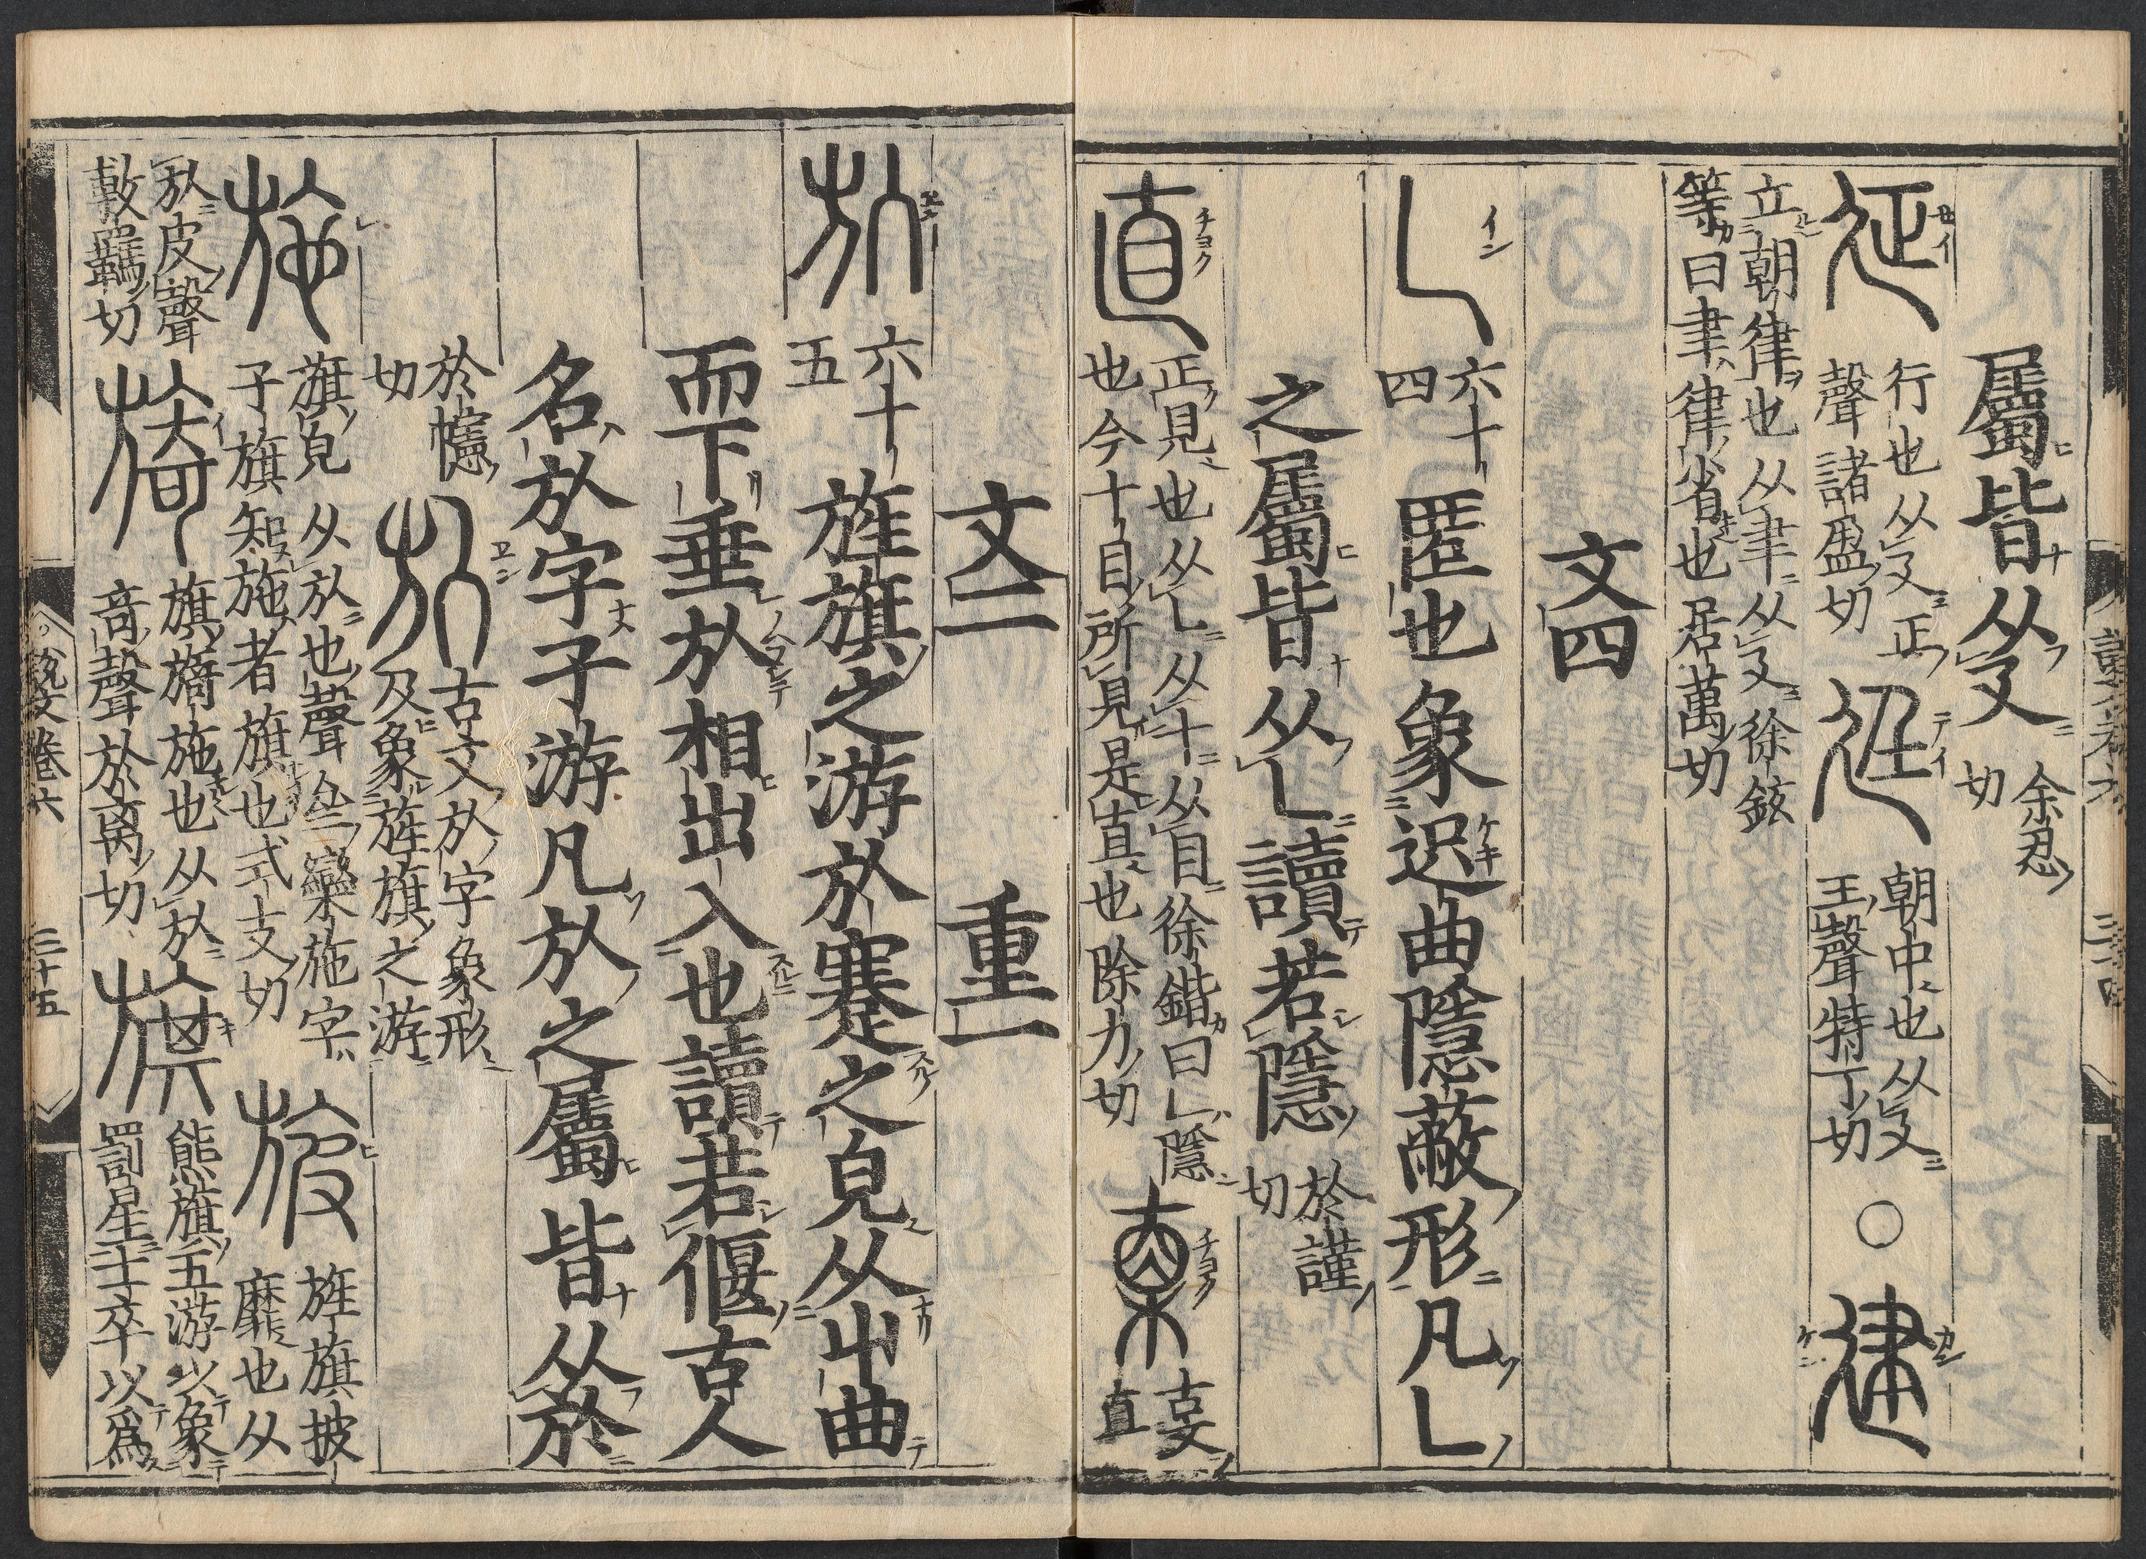 屬皆从廴 余忍切
㢟 行也从廴正聲諸盈切 廷 朝中也从廴𡈼聲特丁切 ○ 建
立朝律也从聿从廴徐鉉等曰聿律省也居萬切
文四
乚 六十四 匿也象迟曲隱蔽形凡乚
之屬皆从乚讀若隱 於謹切
直 正見也从乚从十从目徐鍇曰乚隱也今十目所見是直也除力切 古文直
文二 重一
㫃 六十五 旌旗之游㫃蹇之皃从屮曲
而下垂㫃相出入也讀若偃古人
名㫃字子游凡㫃之屬皆从㫃
於幰切 㫃 古文㫃字象形及象旌旗之游
施 旗皃从㫃也聲亝欒施字子旗知施者旗也式支切 旇 旌旗披靡也从
㫃皮聲敷羈切 旖 旗旖施也从㫃奇聲於离切 旗 熊旗五游以象罰星士卒以爲
說文卷六 三十五